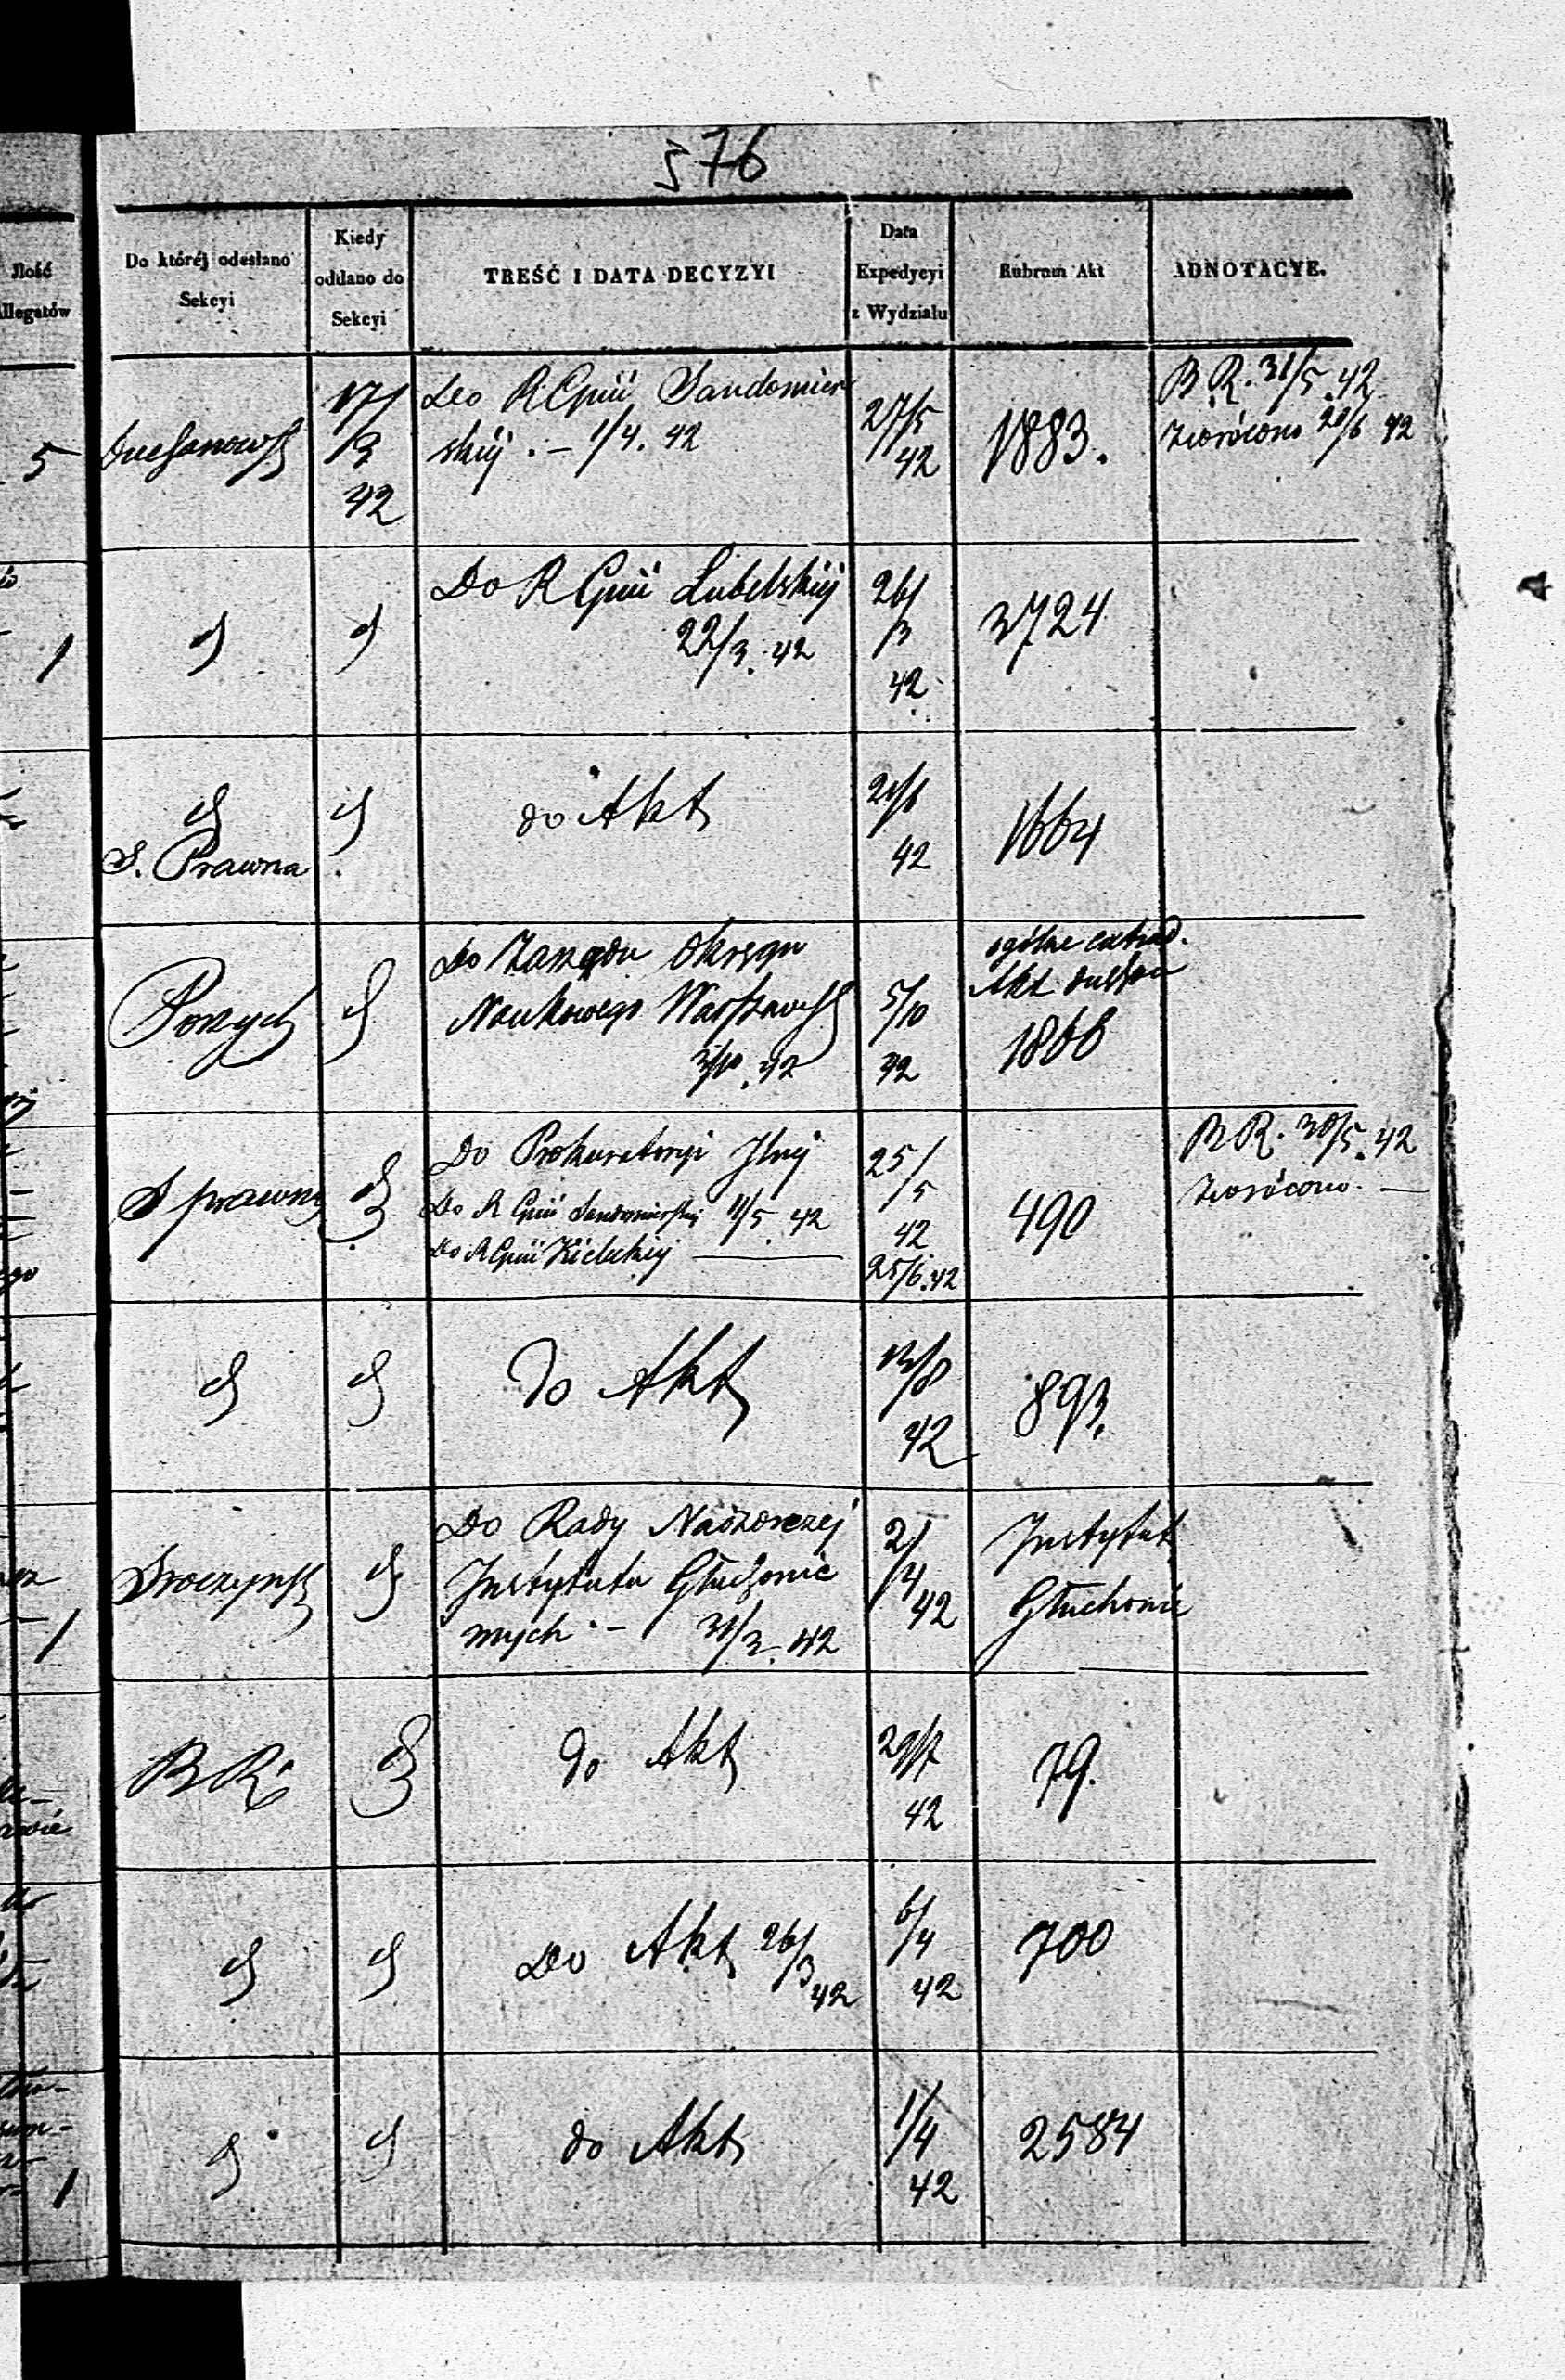 576
Ilość
Allegatów
Do któréj odesłano
Sekcyi
Kiedy
oddano do
Sekcyi
TREŚĆ I DATA DECYZYI
Data
Expedycyi
z Wydziału
Rubrum Akt
ADNOTACYE.
5
17/
3
42
Do R Gnii Sandomier
skiij . – 1/4. 42
27/5
42
1883.
B R. 31/5. 42
zwrócono 20/6 42
1
Do R Gnii Lubelskiij
22/3. 42
26/
3
42
3724
S. Prawna
do Akt
21/6
42
1664
Do Zarządu Okręgu
Naukowego Warszaws
3/10. 42
5/10
42
ogólne
Akt
1866
S prawna
Do Prokuratoryi
Do R Gnii Sandomierskiij 11/5. 42
Do R Gnii Kieleckiij
25/
5
42
25/6.42
490
B R. 30/5. 42
zwrócono. —
Do Akt
12/8
42
893.
1
Do Rady Nadzorczej
Instytutu Głuchonie
mych . – 31/3. 42
2/
4
42
Instytut
Głuchonie
B R.
do Akt
29/7
42
79.
Do Akt 26/3 42
6/4
42
700
1
do Akt
1/4
42
2584